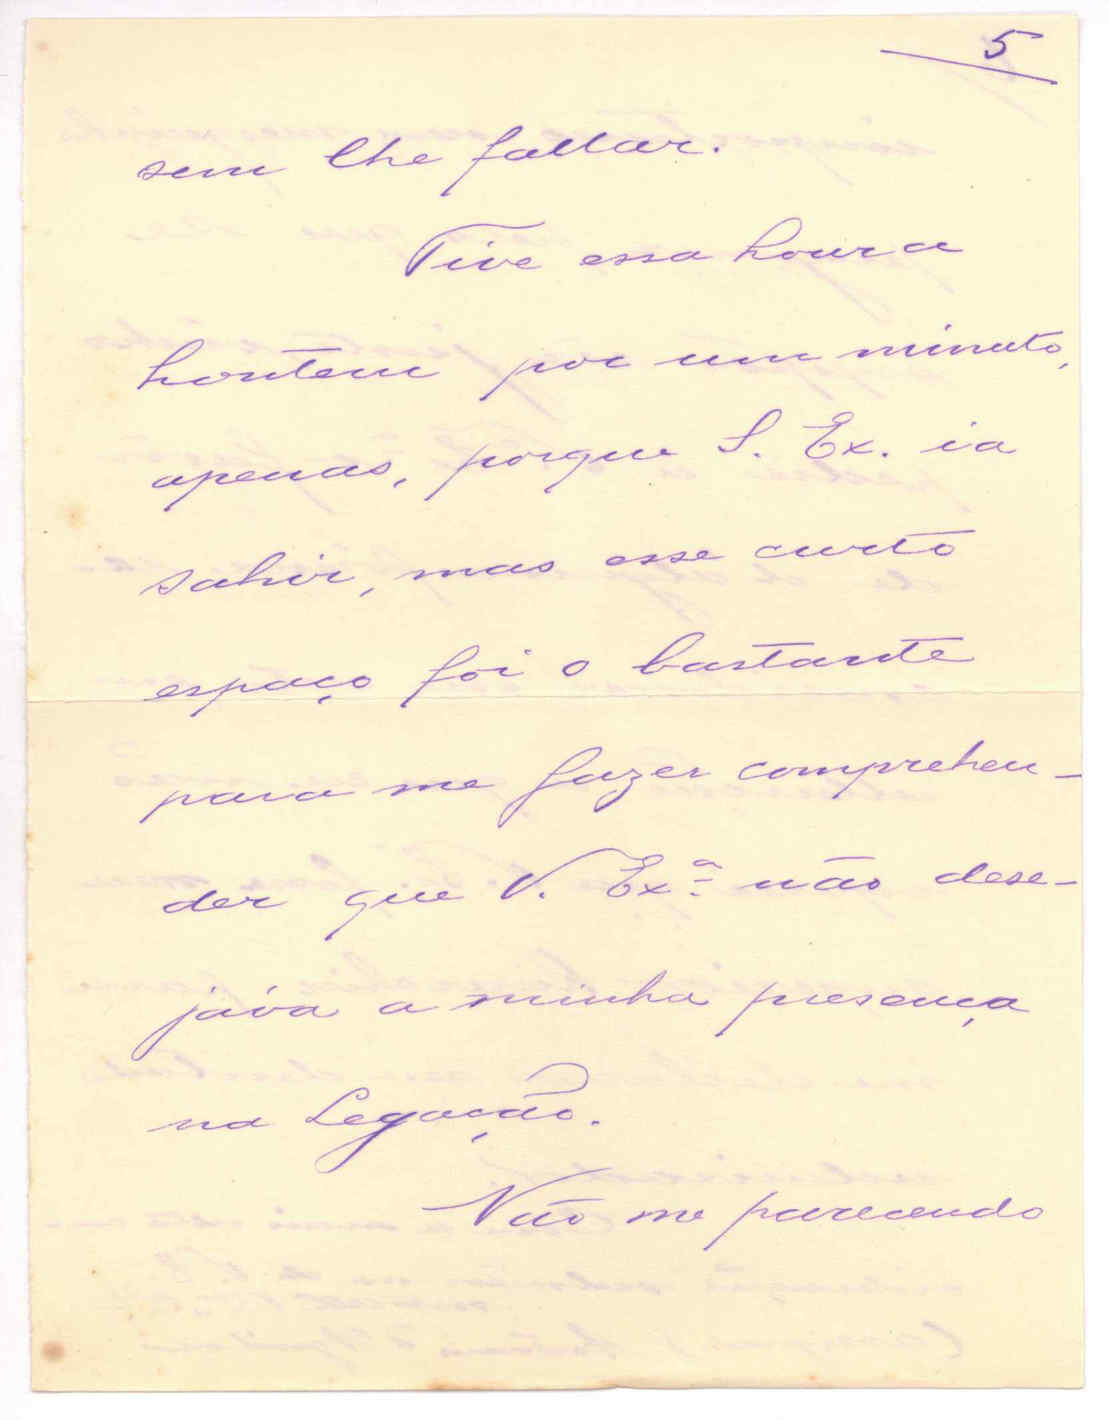 5
sem lhe fallar.
Tive essa honra
hontem por um minuto,
apenas, porque S. Ex. ia
sahir, mas esse curto
espaço foi o bastante
para me fazer comprehen-
der que V. Ex.ª não dese-
jáva a minha presença
na Legação.
Não me parecendo